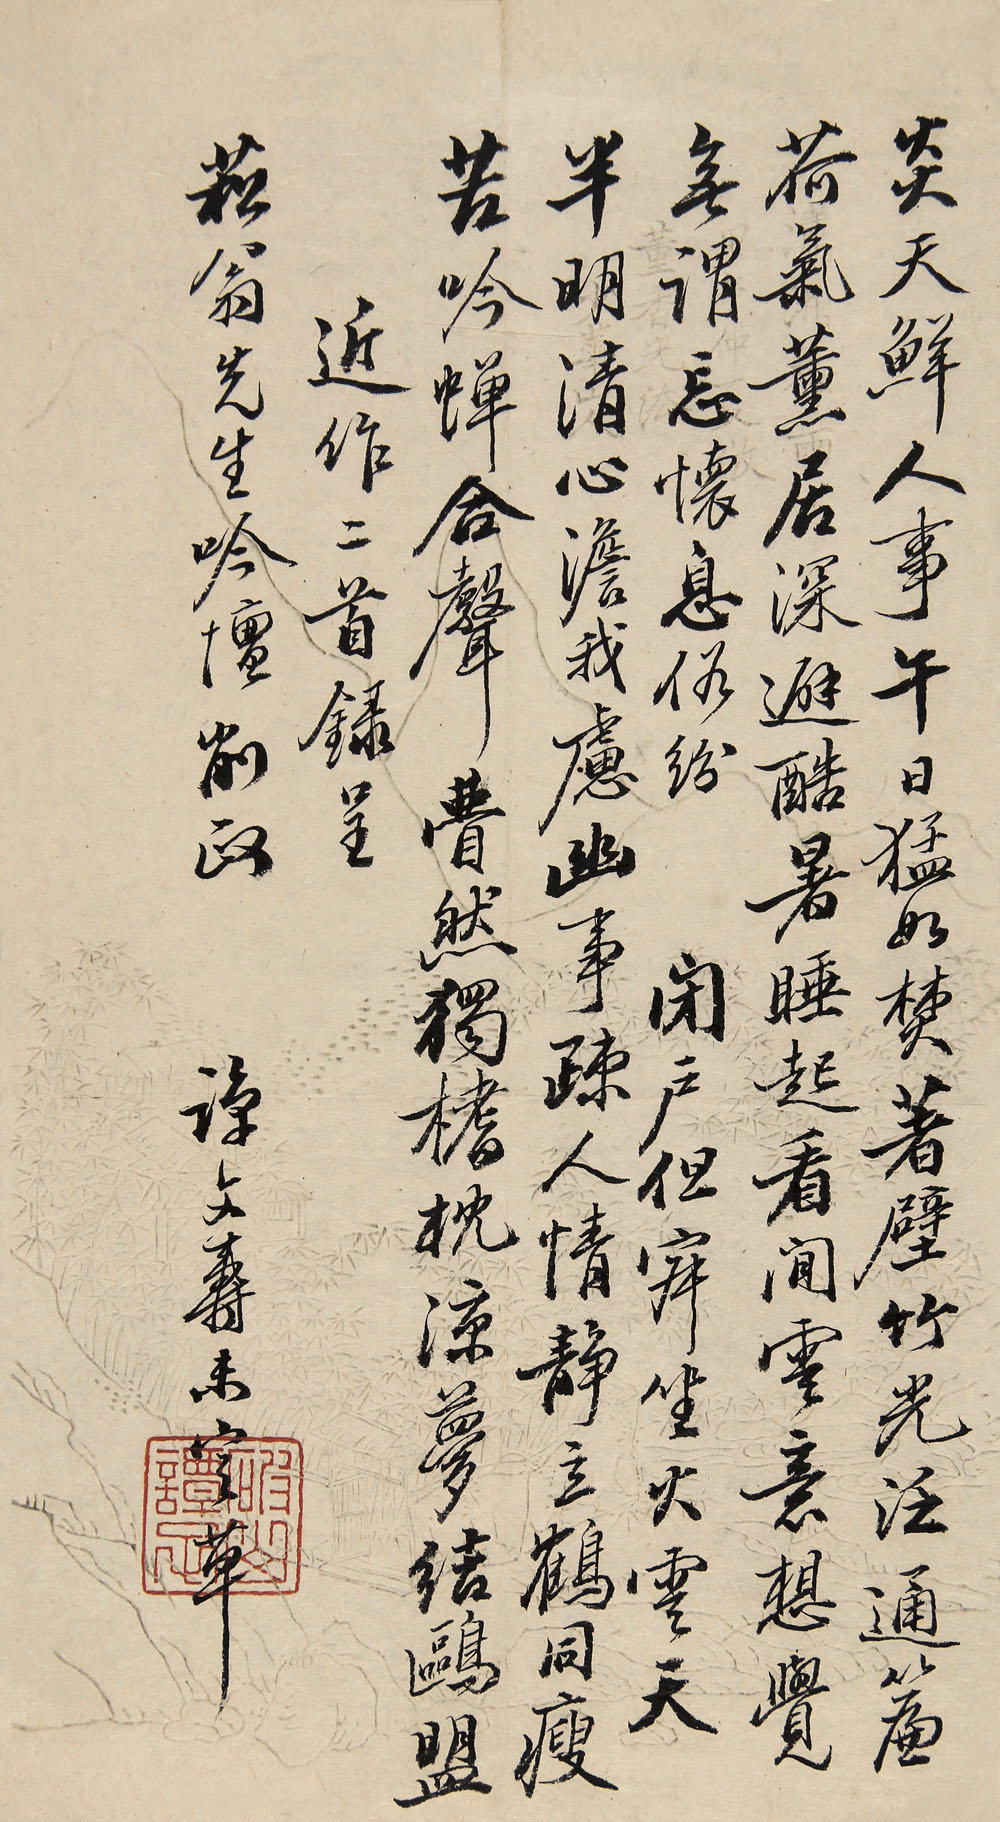 炎天鮮人事午日猛如焚著壁竹光泛通簾
荷氣薰居深避酷暑睡起看閒雲意想覺
無謂忘懷息俗紛 閉戶但寂坐火雲天
半明清心澹我慮幽事疎人情靜立鶴同瘦
苦吟蟬合聲費然獨榰枕涼夢結鷗盟
近作二首錄呈
菘翁先生吟壇削政
譚文壽未定草